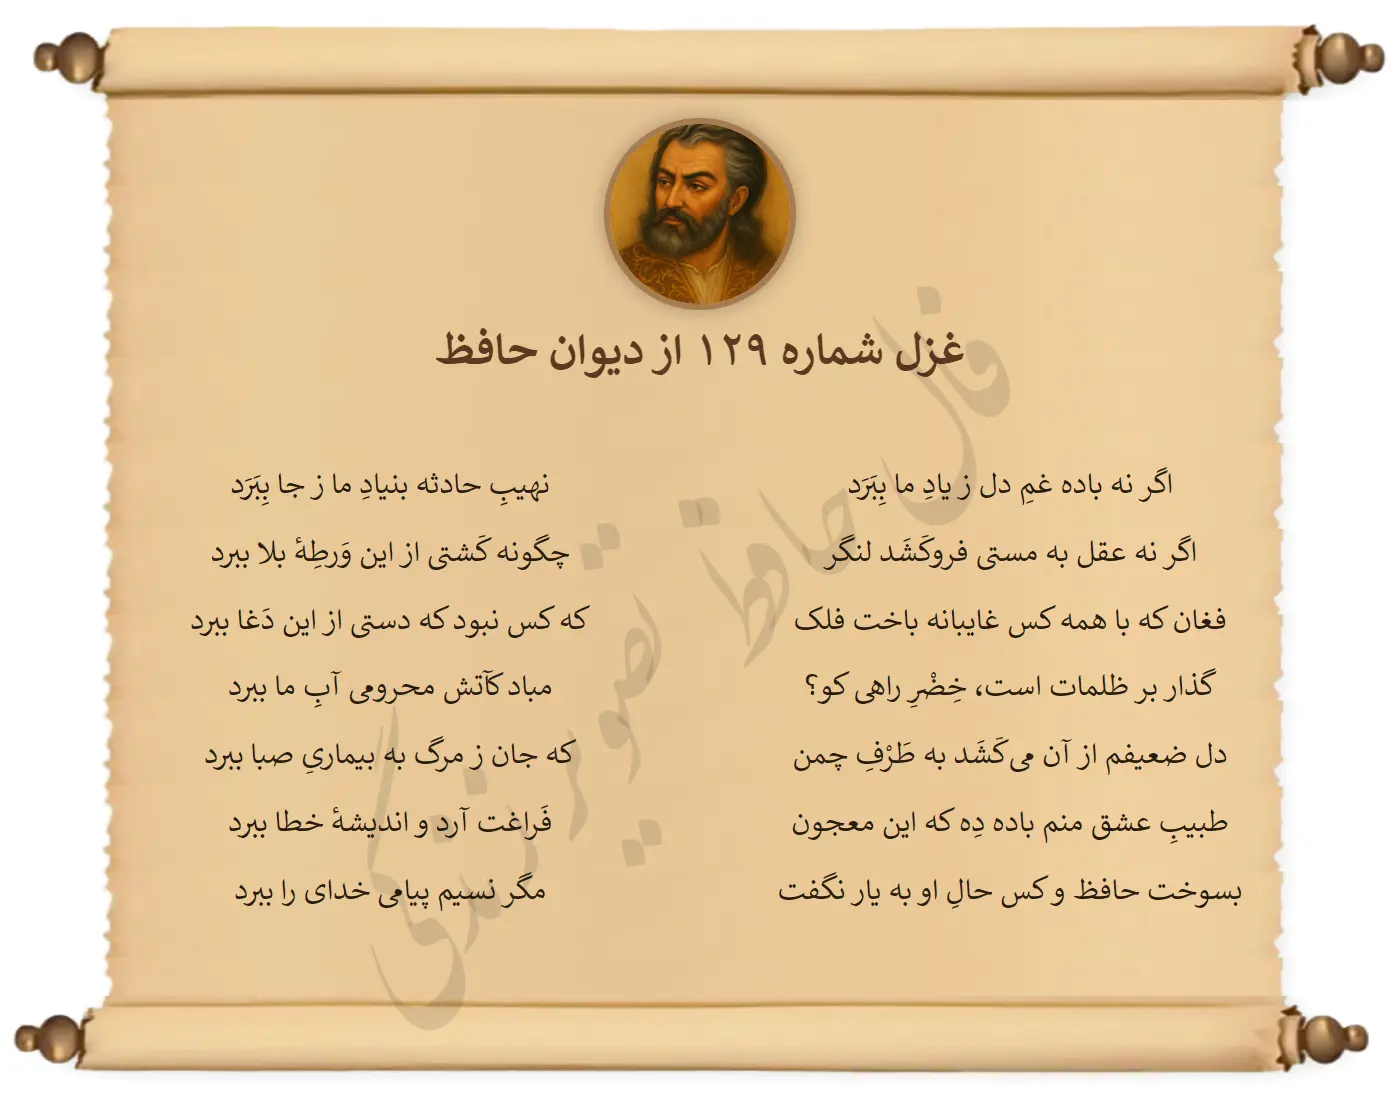 غزل شماره ۱۲۹ از دیوان حافظ
اگر نه باده غمِ دل ز یادِ ما بِبَرَد
نهیبِ حادثه بنیادِ ما ز جا بِبَرَد
اگر نه عقل به مستی فروکَشَد لنگر
چگونه کَشتی از این وَرطِهٔ بلا ببرد
فغان که با همه کس غایبانه باخت فلک
که کس نبود که دستی از این دَغا ببرد
گذار بر ظلمات است، خِضْرِ راهی کو؟
مباد کآتش محرومی آبِ ما ببرد
دل ضعیفم از آن می‌کَشَد به طَرْفِ چمن
که جان ز مرگ به بیماریِ صبا ببرد
طبیبِ عشق منم باده دِه که این معجون
فَراغت آرد و اندیشهٔ خطا ببرد
بسوخت حافظ و کس حالِ او به یار نگفت
مگر نسیم پیامی خدای را ببرد
فال حافظ تصویر زندگی